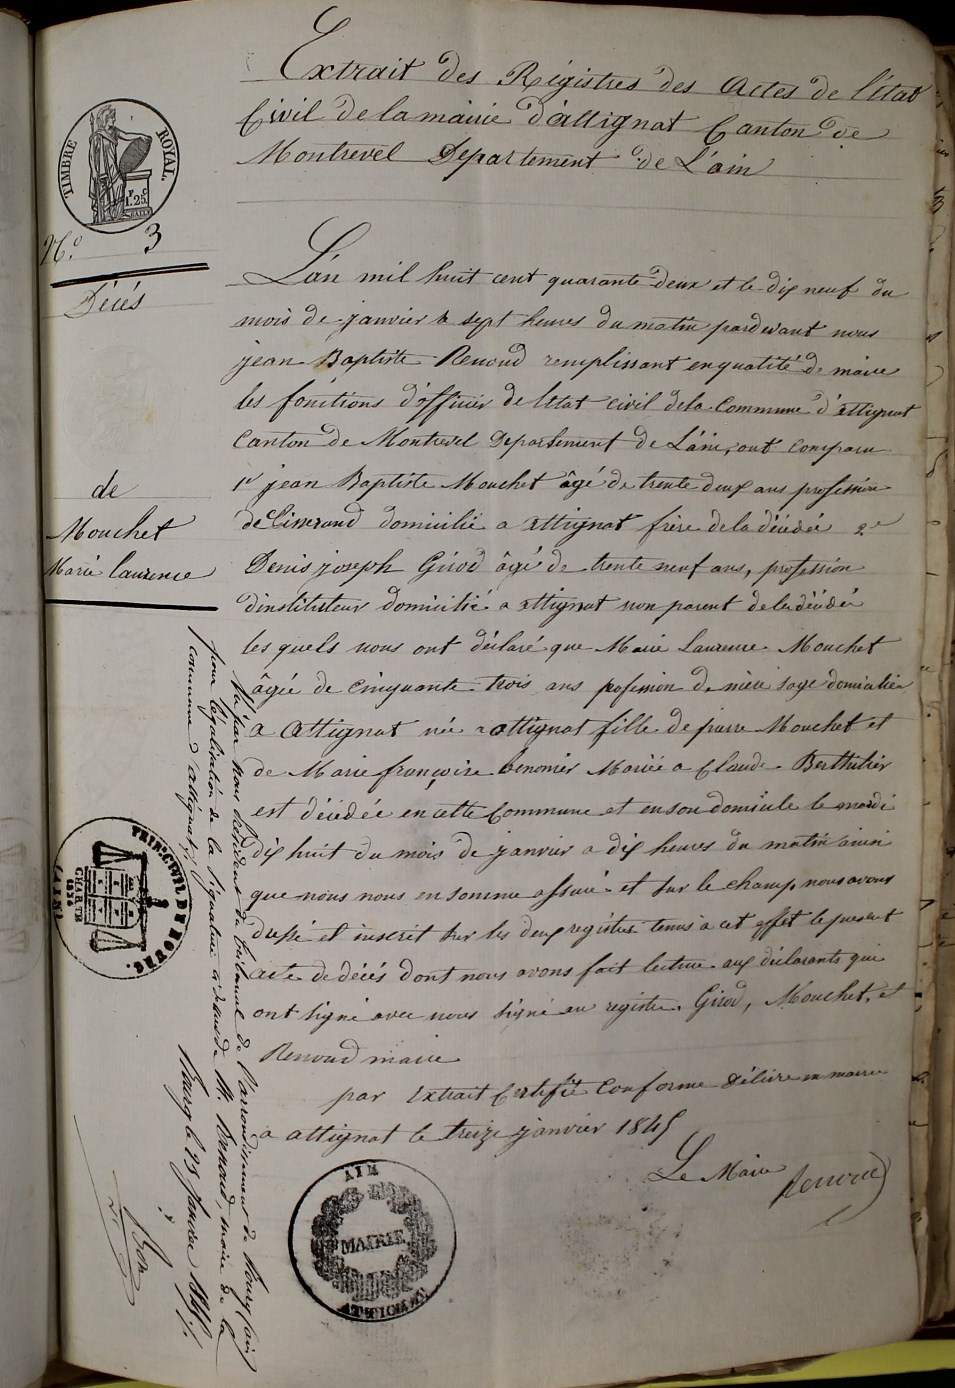 Extrait des Régistres des Actes de l'état
Civil de la mairie d'attignat Canton de
Montrevel Departement de L'ain
TIMBRE ROYAL.
1.25
N.° 3
Décés
de
Mouchet
Marie laurence
L'an mil huit cent quarante deux et le dix neuf du
mois de janvier a sept heures du matin pardevant nous
jean Baptiste Renoud remplissant en qualité de maire
les fonctions d'officier de l'état civil de la Commune d'attignat
Canton de Montrevel Departement de L'ain, ont comparu
1er jean Baptiste Mouchet âgé de trente deux ans profession
de domicilié a attignat frère de la décédée 2e
Denis joseph Girod âgé de trente neuf ans, profession
d'instituteur domicilié a attignat non parent de la décédée
les quels nous ont déclaré que Marie Laurence Mouchet
âgée de cinquante trois ans profession de mère sage domiciliée
a attignat née a attignat fille de pierre Mouchet et
de Marie françoise benonier Mariée a Claude Berthelier
est décédée en cette Commune et en son domicile le mardi
dix huit du mois de janvier a dix heures du matin ainsi
que nous nous en somme assuré et sur le champ nous avons
dressé et inscrit sur les deux registres tenus a cet effet le present
acte de décés dont nous avons fait lecture aux déclarants qui
ont signé avec nous signé au registre. Girod, Mouchet, et
Renoud maire
par Extrait Certifié Conforme délivré en mairie
a attignat le treize janvier 1845
Le Maire
Renoud
Vu par nous Président du tribunal de l'arrondissement de Bourg (ain)
pour légalisation de la signature ci dessus de M. Renoud, maire de la
commune d'attignat
Bourg le 23 Janvier 1845
TRIB. CIVIL DE BOURG.
CHARTE
1830
L'AIN
AIN
MAIRIE
ATTIGNAT